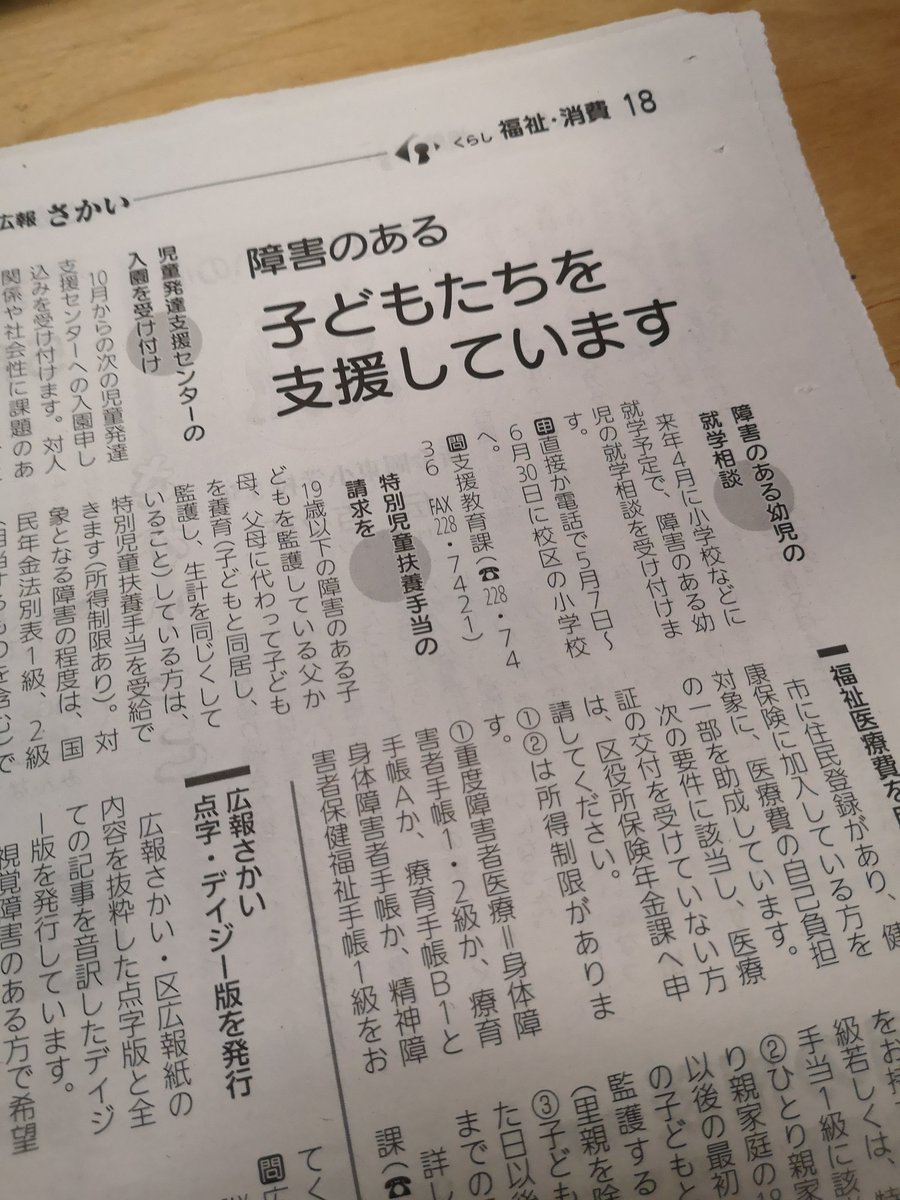 くらし 福祉・消費 18
広報 さかい
障害のある
子どもたちを
支援しています
障害のある幼児の
就学相談
来年4月に小学校などに
就学予定で、障害のある幼
児の就学相談を受け付けま
す。
申直接か電話で5月7日〜
6月30日に校区の小学校
へ。
問支援教育課(☎228・74
36 FAX228・7421)
特別児童扶養手当の
請求を
19歳以下の障害のある子
どもを監護している父か
母、父母に代わって子ども
を養育(子どもと同居し、
監護し、生計を同じくして
いること)している方は、
特別児童扶養手当を受給で
きます(所得制限あり)。対
象となる障害の程度は、国
民年金法別表1級、2級
児童発達支援センターの
入園を受け付け
10月からの次の児童発達
支援センターへの入園申し
込みを受け付けます。対人
関係や社会性に課題のあ
福祉医療費を
市に住民登録があり、健
康保険に加入している方を
対象に、医療費の自己負担
の一部を助成しています。
次の要件に該当し、医療
証の交付を受けていない方
は、区役所保険年金課へ申
請してください。
①②は所得制限がありま
す。
①重度障害者医療＝身体障
害者手帳1・2級か、療育
手帳Aか、療育手帳B1と
身体障害者手帳か、精神障
害者保健福祉手帳1級をお
をお持
級若しくは、特
手当1級に該
②ひとり親家
り親家庭の
以後の最初
の子どもと
監護する
(里親を除
③子ども
た日以後
までの
詳し
課(☎
広報さかい
点字・デイジー版を発行
広報さかい・区広報紙の
内容を抜粋した点字版と全
ての記事を音訳したデイジ
ー版を発行しています。
視覚障害のある方で希望
てく
問広